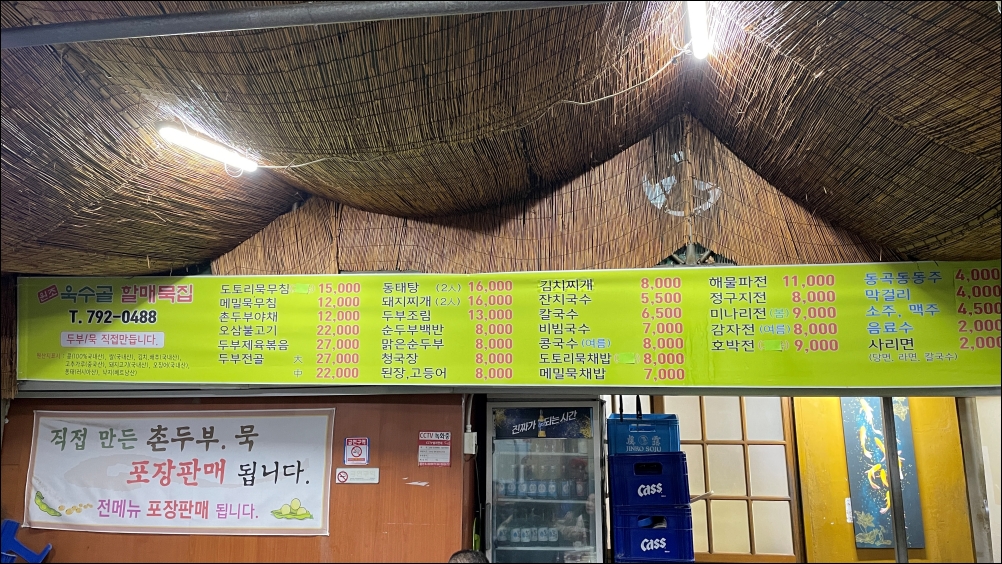 원조 옥수골 할매묵집
T. 792-0488
두부/묵 직접만듭니다.
도토리묵무침 15,000
메밀묵무침 12,000
촌두부야채 12,000
오삼불고기 22,000
두부제육볶음 27,000
두부전골 大 27,000
中 22,000
동태탕 (2人) 16,000
돼지찌개 (2人) 16,000
두부조림 13,000
순두부백반 8,000
맑은순두부 8,000
청국장 8,000
된장,고등어 8,000
김치찌개 8,000
잔치국수 5,500
칼국수 6,500
비빔국수 7,000
콩국수 (여름) 8,000
도토리묵채밥 8,000
메밀묵채밥 7,000
해물파전 11,000
정구지전 8,000
미나리전 (봄) 9,000
감자전 (여름) 8,000
호박전 9,000
동곡동동주 4,000
막걸리 4,000
소주, 맥주 4,500
음료수 2,000
사리면 2,000
(당면, 라면, 칼국수)
직접 만든 촌두부.묵
포장판매 됩니다.
전메뉴 포장판매 됩니다.
금연구역
CCTV 녹화중
진짜가 되는 시간
JINRO SOJU
Cass
Cass